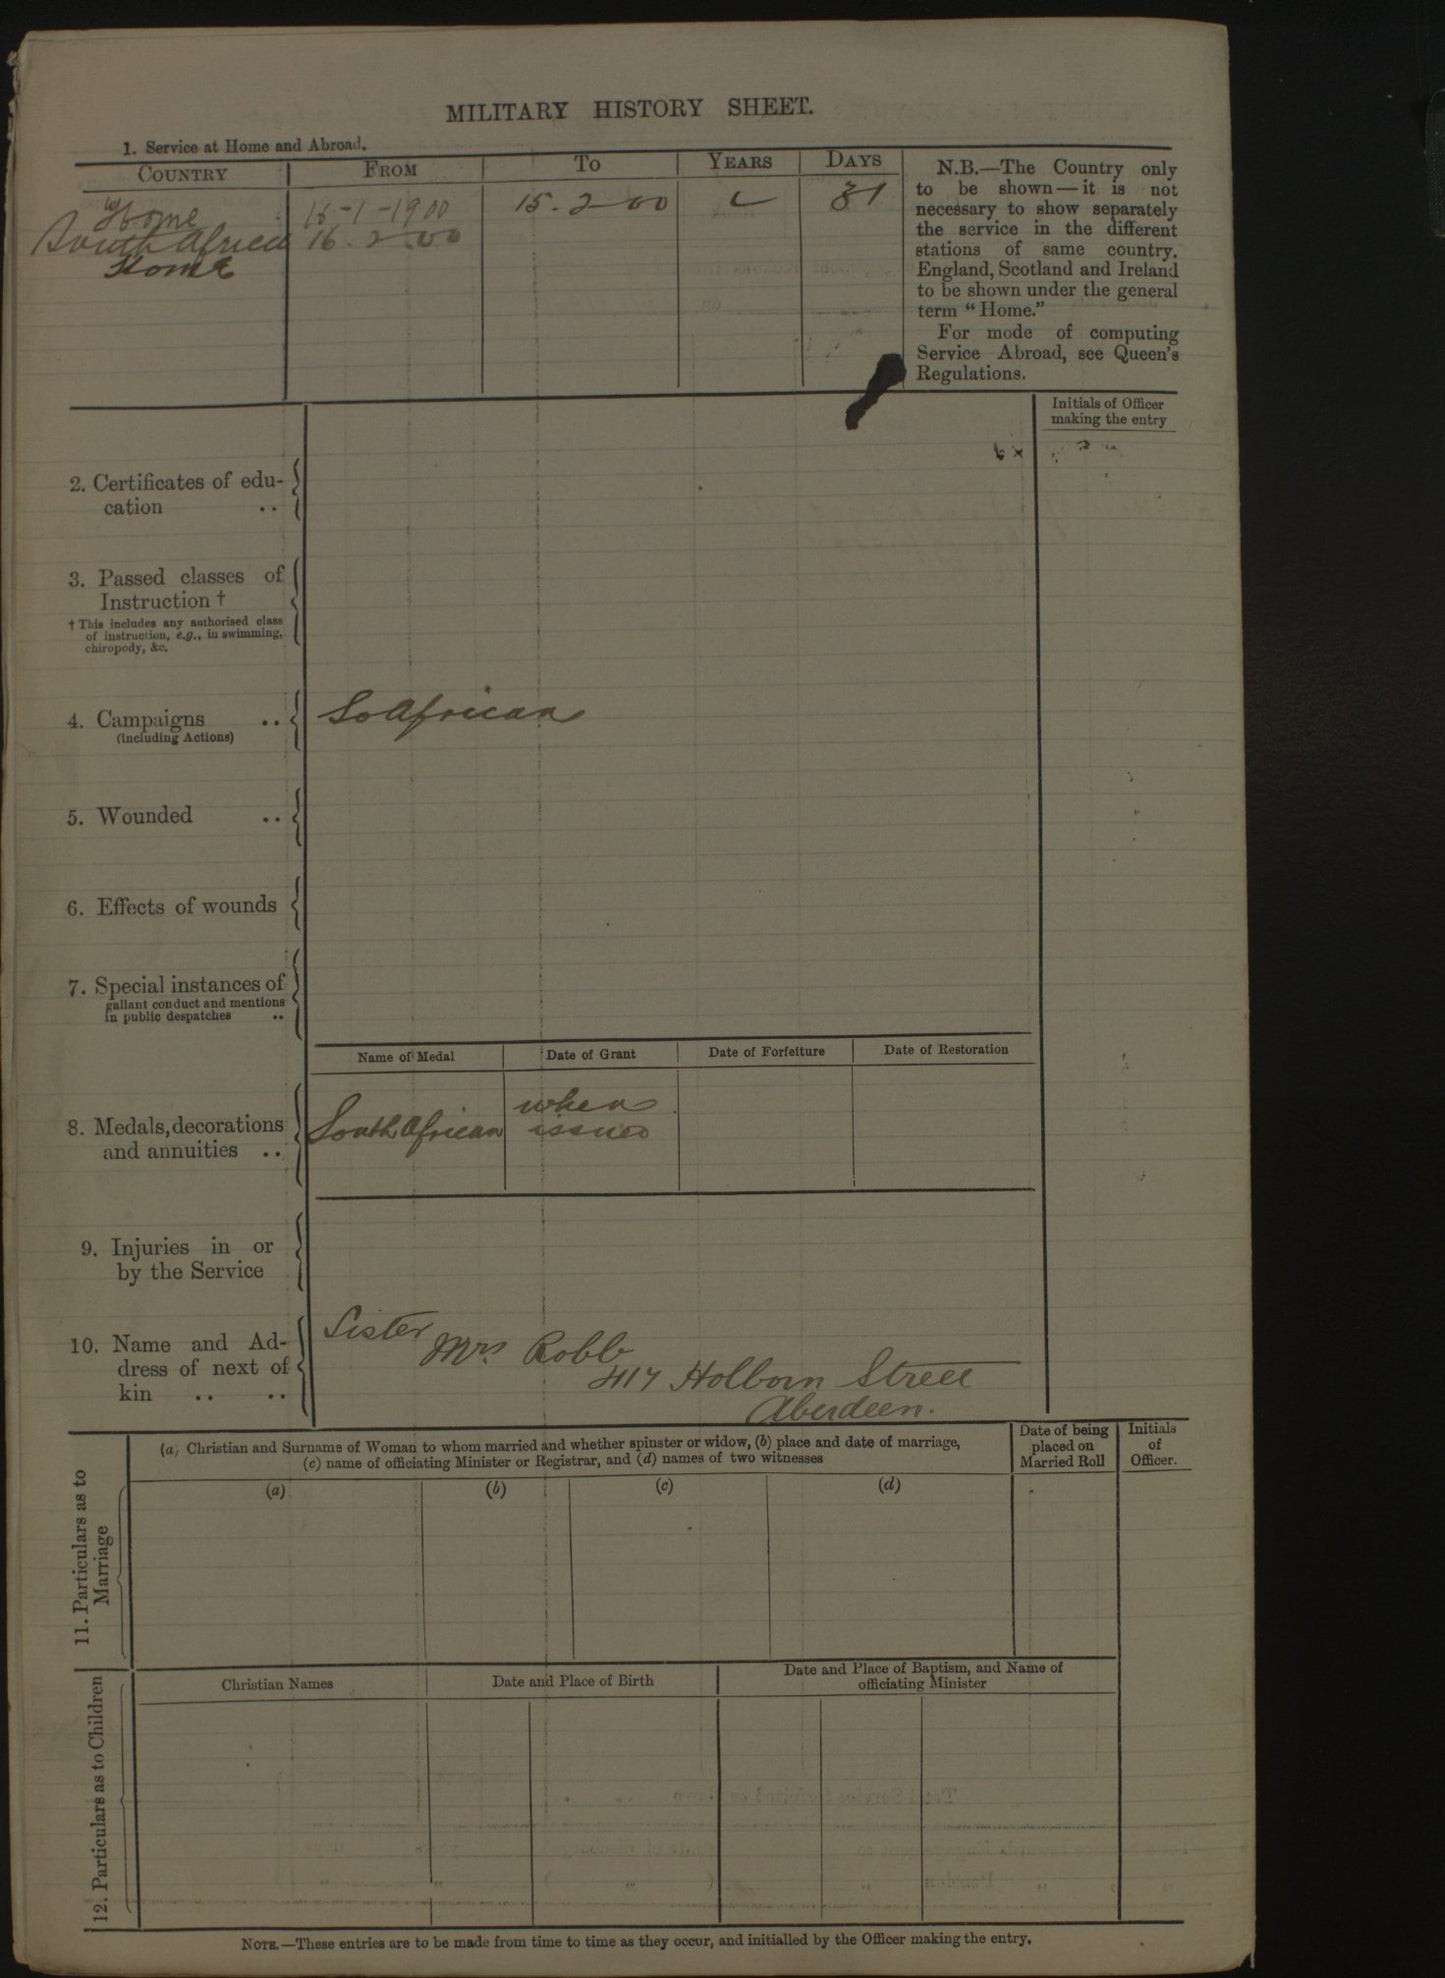 MILITARY HISTORY SHEET.
1. Service at Home and Abroad.
COUNTRY FROM TO YEARS DAYS
Home 16-1-1900 15-2-00 31
South African 16.2.00
Home
N.B.—The Country only
to be shown—it is not
necessary to show separately
the service in the different
stations of same country.
England, Scotland and Ireland
to be shown under the general
term "Home."
For mode of computing
Service Abroad, see Queen's
Regulations.
Initials of Officer
making the entry
2. Certificates of edu-
cation ..
3. Passed classes of
Instruction †
† This includes any authorised class
of instruction, e.g., in swimming,
chiropody, &c.
4. Campaigns .. So African
(including Actions)
5. Wounded ..
6. Effects of wounds
7. Special instances of
gallant conduct and mentions
in public despatches ..
Name of Medal Date of Grant Date of Forfeiture Date of Restoration
8. Medals, decorations
and annuities ..
South African when
issued
9. Injuries in or
by the Service
10. Name and Ad-
dress of next of
kin .. ..
Sister
Mrs. Robb
417 Holborn Street
Aberdeen.
11. Particulars as to
Marriage
(a) Christian and Surname of Woman to whom married and whether spinster or widow, (b) place and date of marriage,
(c) name of officiating Minister or Registrar, and (d) names of two witnesses
Date of being
placed on
Married Roll
Initials
of
Officer.
(a) (b) (c) (d)
12. Particulars as to Children
Christian Names Date and Place of Birth Date and Place of Baptism, and Name of
officiating Minister
NOTE.—These entries are to be made from time to time as they occur, and initialled by the Officer making the entry.